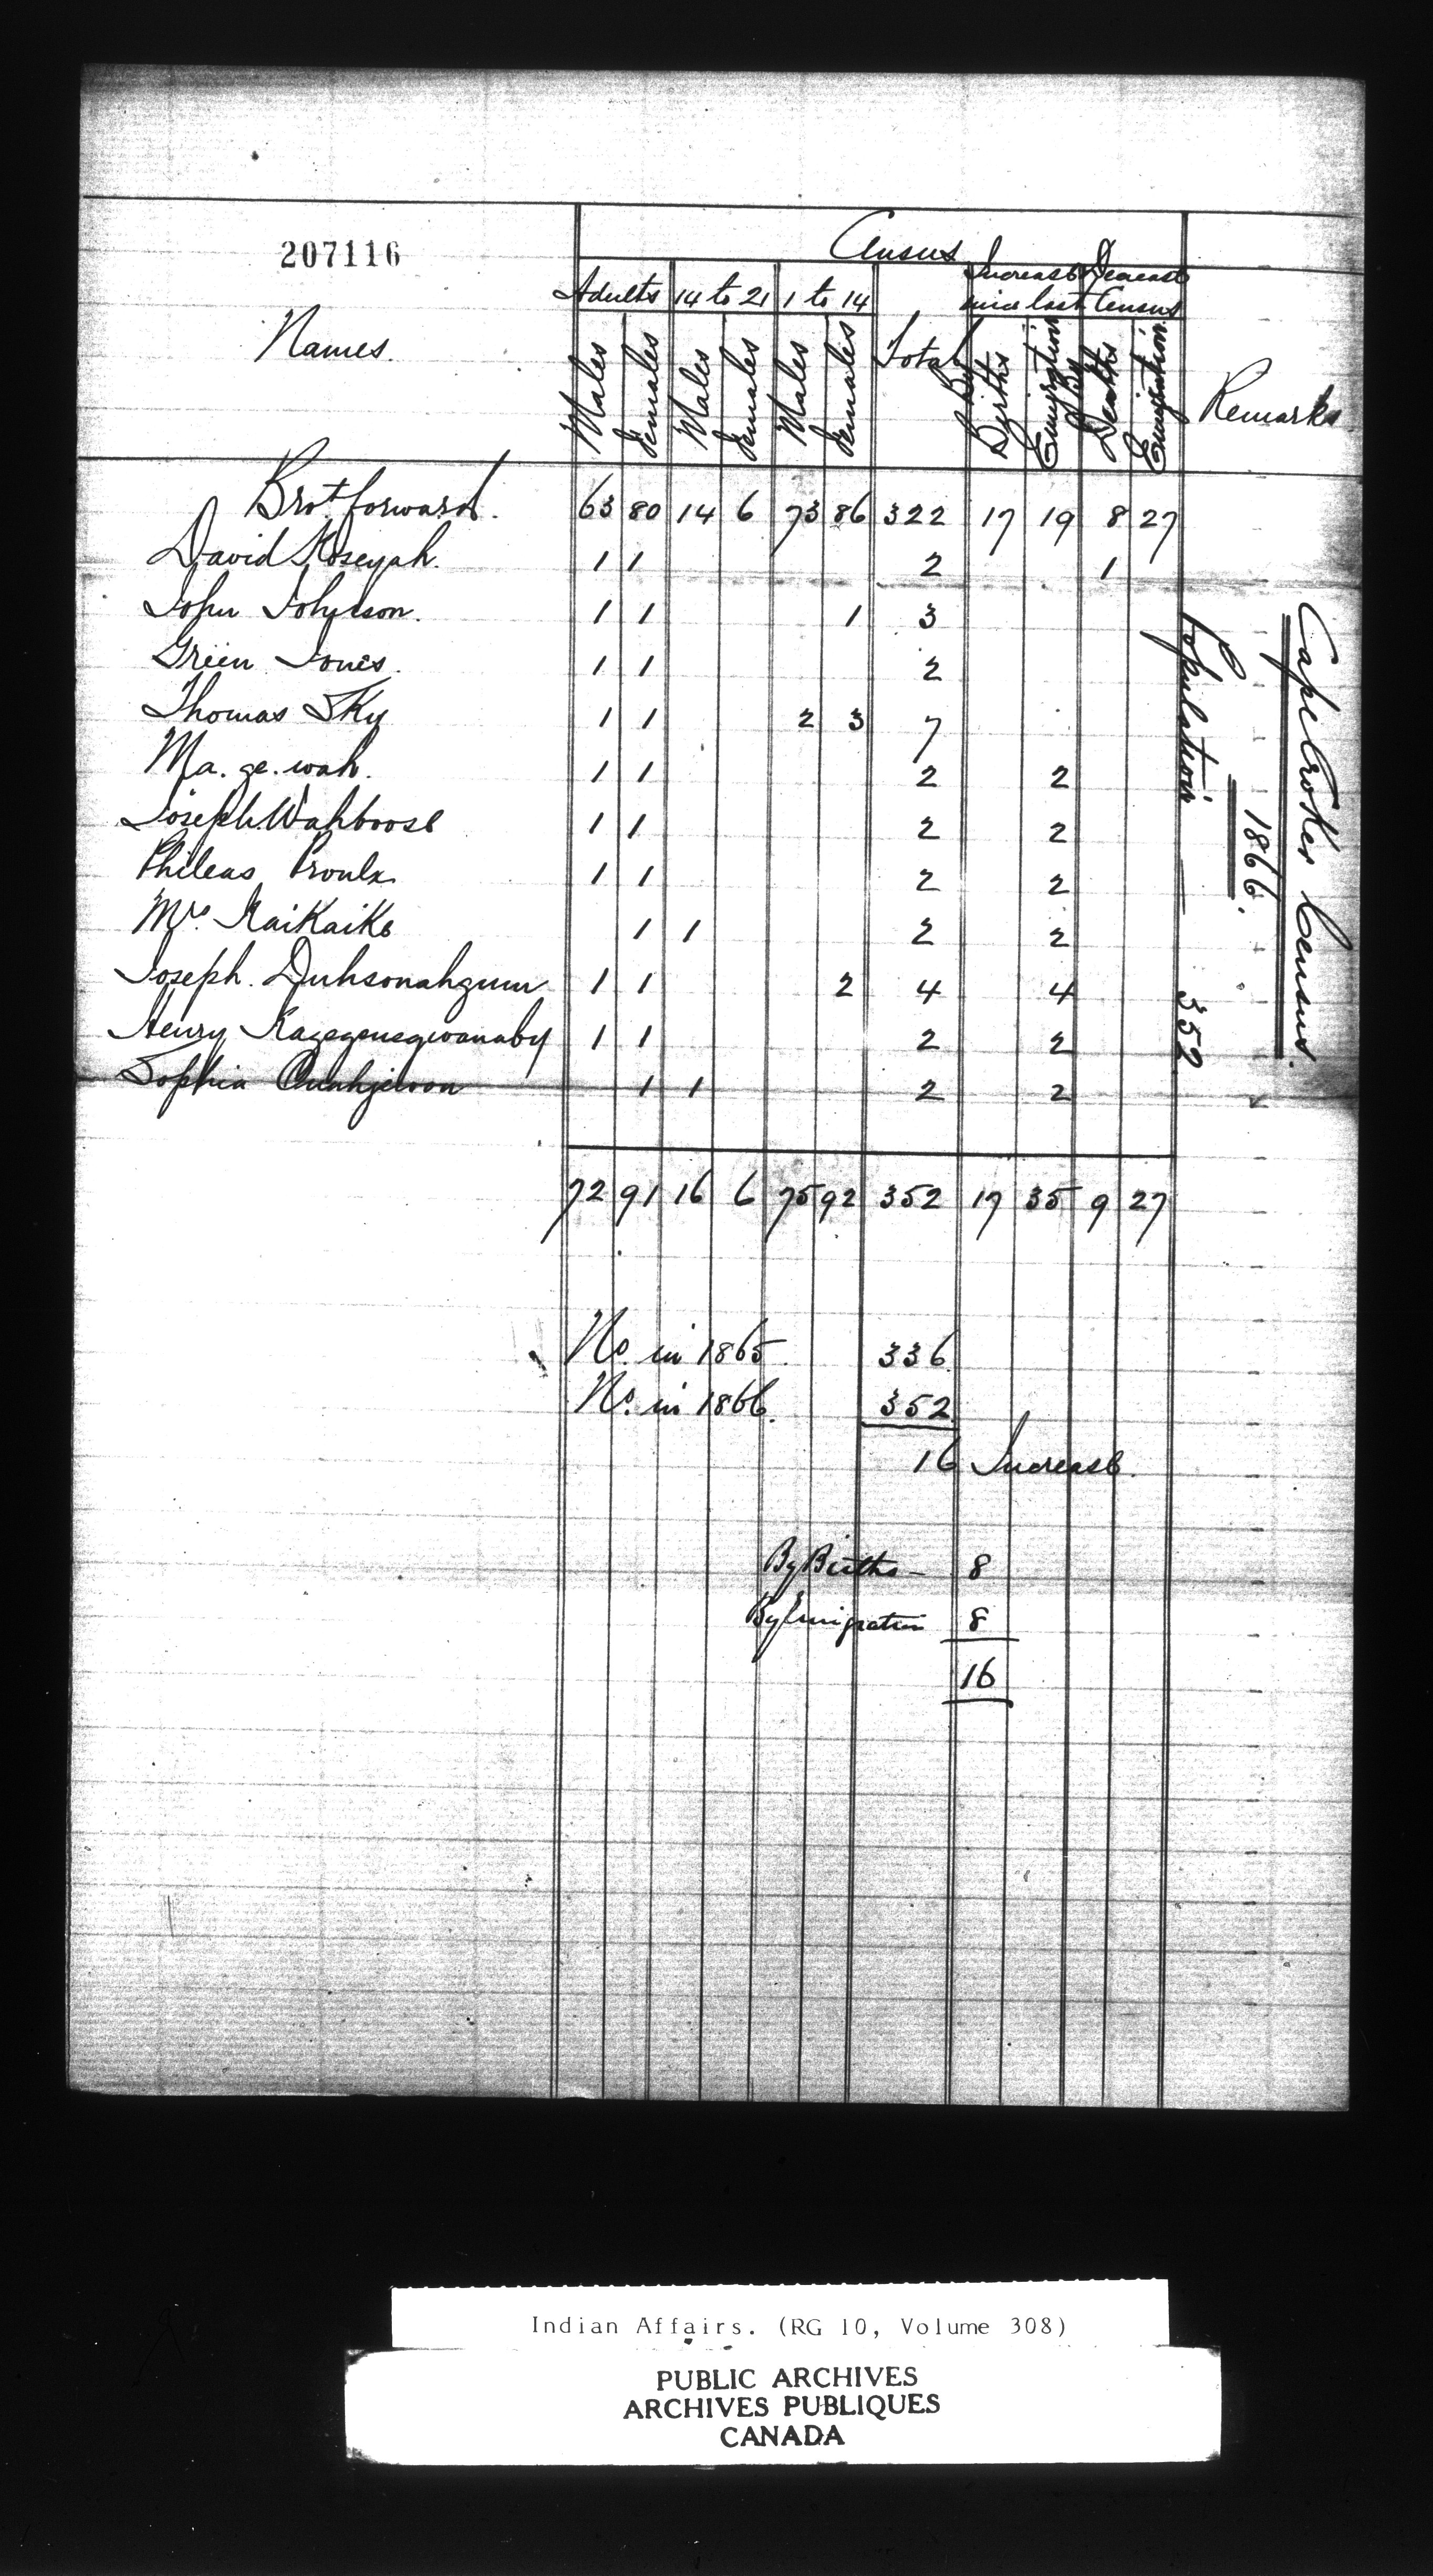 207116
Census
Increase Decrease
since last Census
Adults 14 to 21 1 to 14
Names. Males Females Males Females Males Females Total By Births Emigration By Deaths Emigration Remarks
Brot. forward. 63 80 14 6 73 86 322 17 19 8 27
David 1 1 2 1
John Johnson. 1 1 1 3
Green Jones. 1 1 2
Thomas Sky 1 1 2 3 7
Ma. ge. wah. 1 1 2 2
Joseph Wahboose 1 1 2 2
Phileas Proulx 1 1 2 2
Mrs. KaiKaike 1 1 2 2
Joseph. 1 1 2 4 4
Henry 1 1 2 2
Sophia 1 1 2 2
72 91 16 6 75 92 352 17 35 9 27
No. in 1865. 336
No. in 1866. 352
16 Increase.
By Births - 8
By Emigration 8
16
Cape Croker Census.
1866.
Population — 352
Indian Affairs. (RG 10, Volume 308)
PUBLIC ARCHIVES
ARCHIVES PUBLIQUES
CANADA